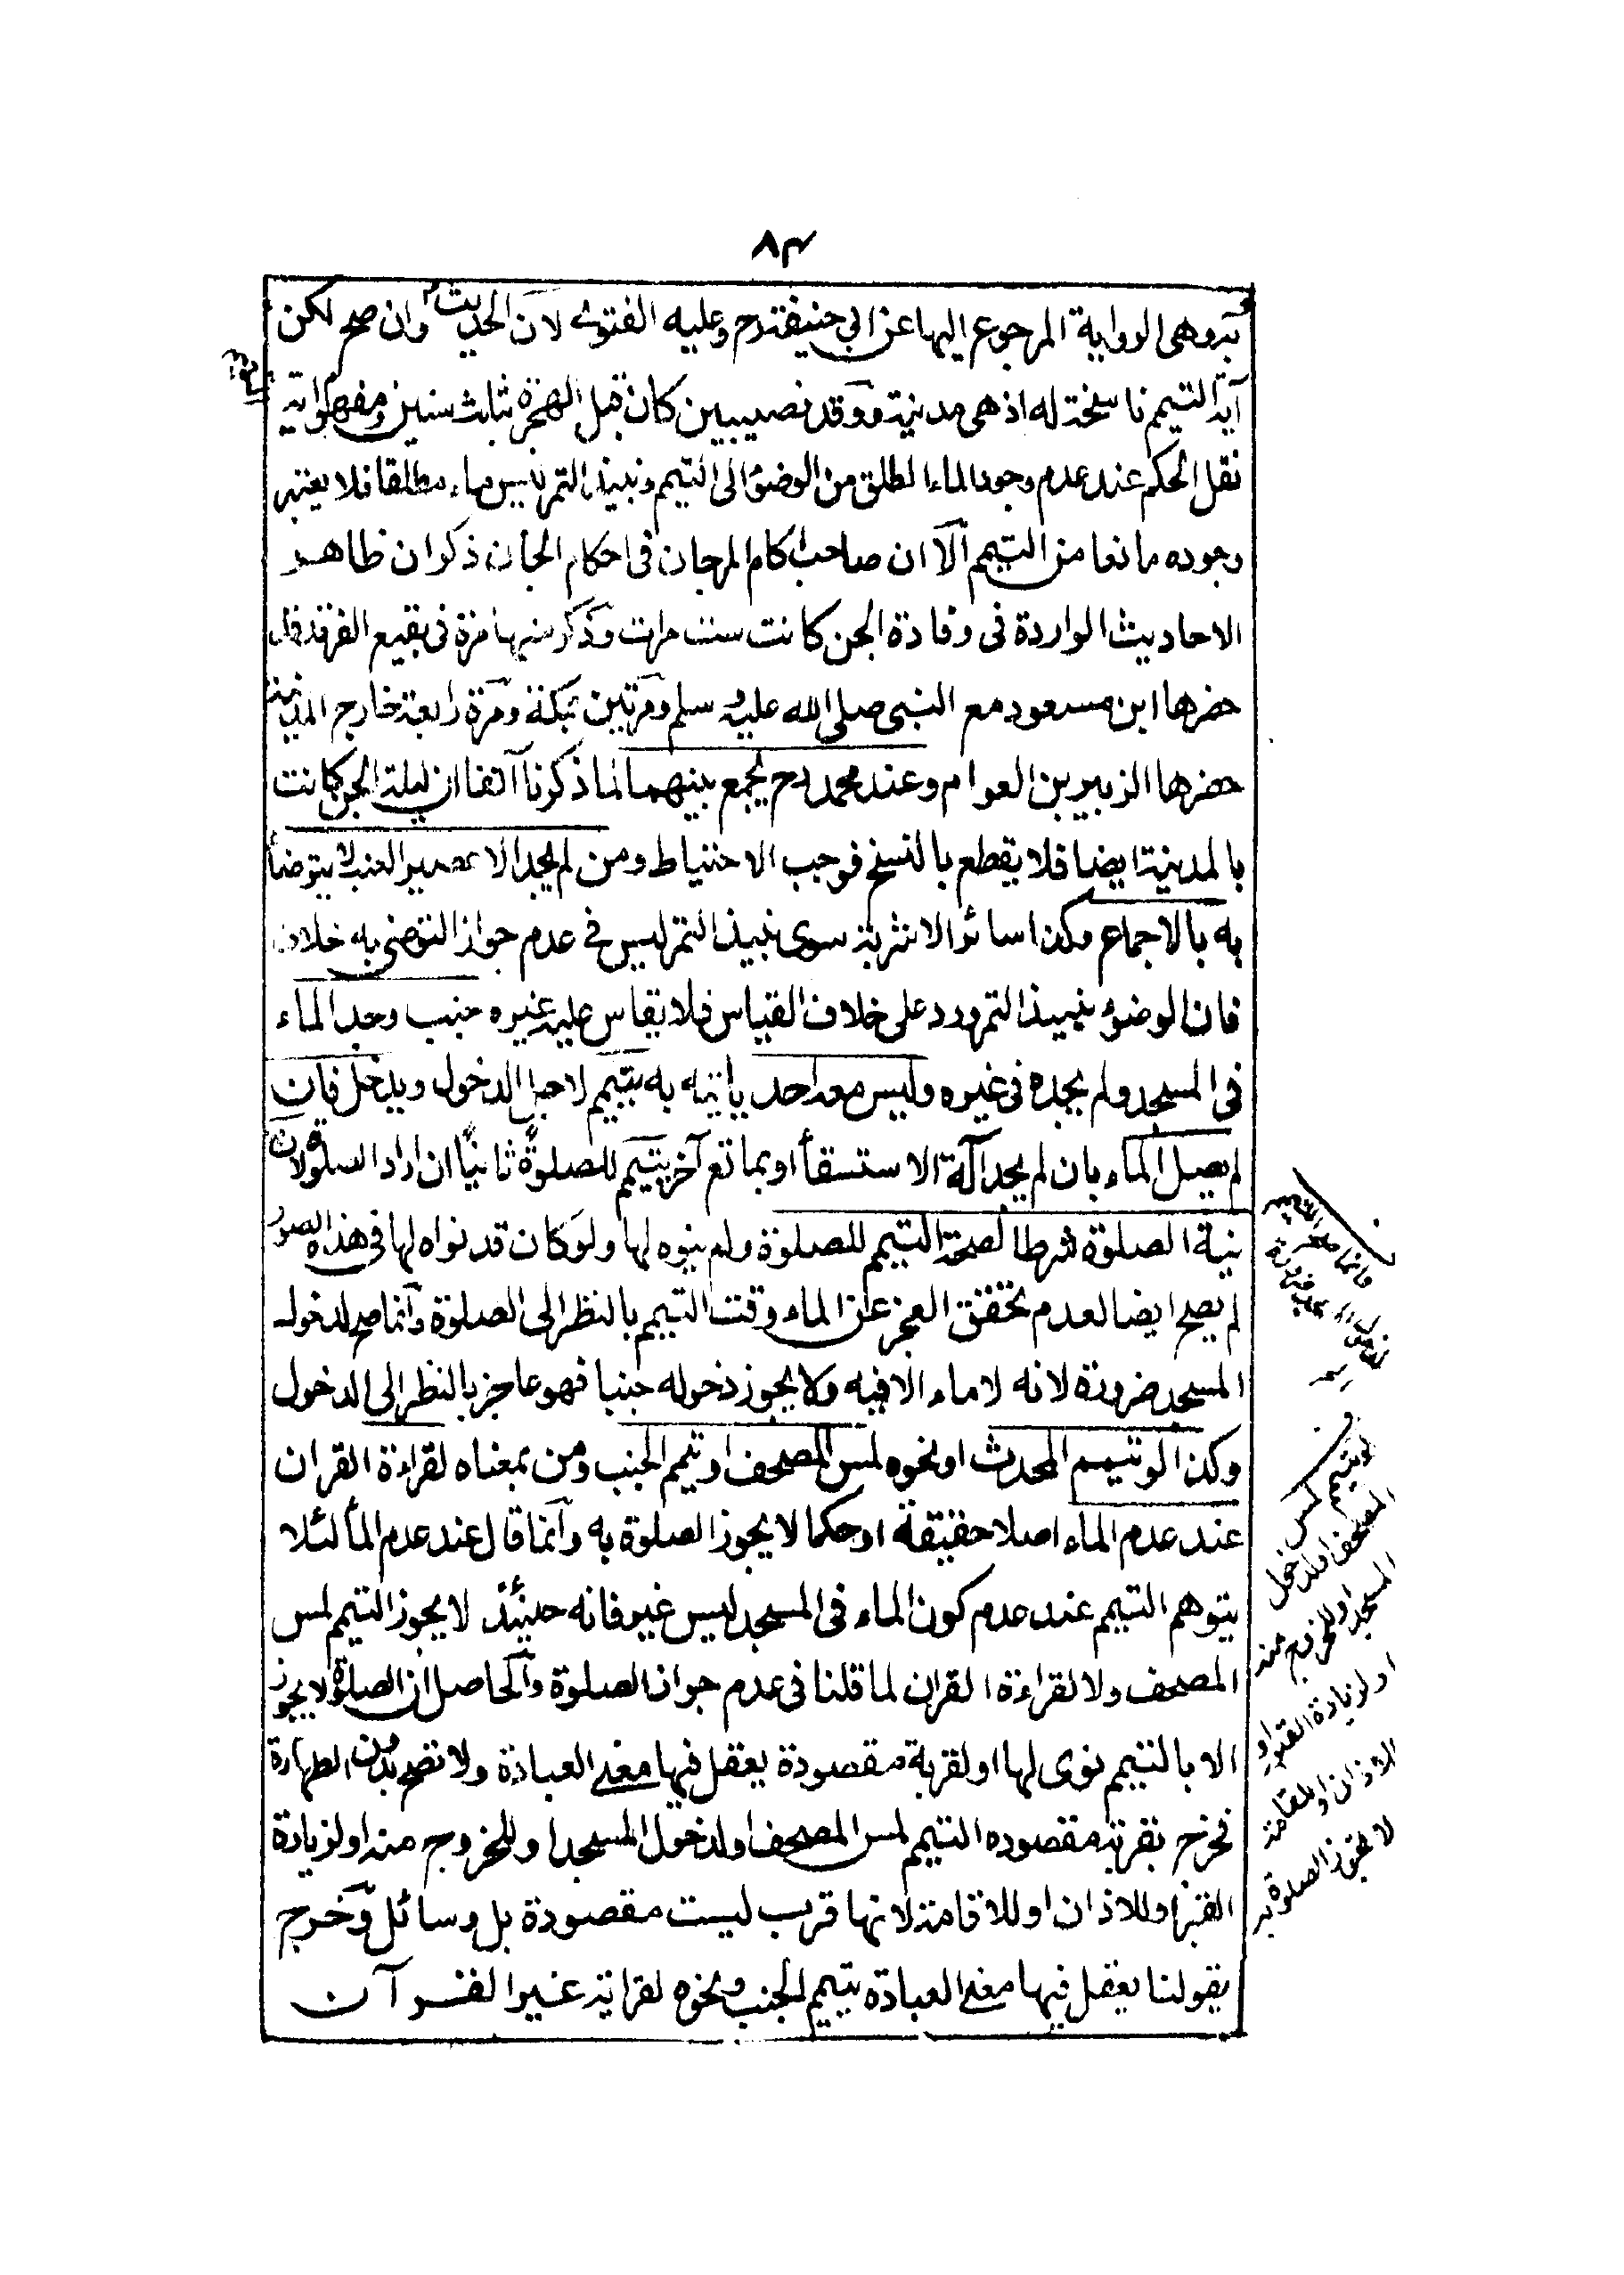 ٨٣
به وهى الرواية المرجوع اليها عن ابي حنيفة رح وعليه الفتوى لان الحديث وان صح لكن
آية التيمم ناسخة له اذ هى مدنية ووفد نصيبين كان قبل الهجرة بثلث سنين ومفهوم آية
نقل الحكم عند عدم وجود الماء المطلق من الوضوء الى التيمم ونبيذ التمر ليس ماء مطلقا فلا يعتبر
وجوده مانعا من التيمم الّا ان صاحب آكام المرجان فى احكام الجان ذكر ان ظاهر
الاحاديث الواردة فى وفادة الجن كانت ست مرات وذكر منها مرة فى بقيع الغرقد قد
حضرها ابن مسعود مع النبى صلى الله عليه وسلم ومرتين بمكة ومرة رابعة خارج المدينة
حضرها الزبير بن العوام وعند محمد رح يجمع بينهما لما ذكرنا آنفا ان ليلة الجن كانت
بالمدينة ايضا فلا يقطع بالنسخ فوجب الاحتياط ومن لم يجد الا عصير العنب لا يتوضأ
به بالاجماع وكذا سائر الاشربة سوى نبيذ التمر ليس فى عدم جواز التوضى به خلاف
فان الوضوء بنبيذ التمر ورد على خلاف القياس فلا يقاس عليه غيره جنب وجد الماء
فى المسجد ولم يجده فى غيره وليس معه احد يأتيه به يتيمم لاجل الدخول ويدخل فان
لم يصل الماء بان لم يجد آلة الاستسقأ او بمانع آخر يتيمم للصلوة ثانيًا ان اراد الصلوة لان
نية الصلوة شرط لصحة التيمم للصلوة ولم ينوه لها ولو كان قد نواه لها فى هذه الصور
لم يصح ايضا لعدم تحقق العجز عن الماء وقت التيمم بالنظر الى الصلوة وانما صح لدخول
المسجد ضرورة لانه لا ماء الا فيه ولا يجوز دخوله جنبا فهو عاجز بالنظر الى الدخول
وكذا لو تيمم المحدث او نحوه لمس المصحف او تيمم الجنب ومن بمعناه لقراءة القران
عند عدم الماء اصلا حقيقة او حكما لا يجوز الصلوة به وانما قال عند عدم المأ لئلا
يتوهم التيمم عند عدم كون الماء فى المسجد ليس غير فانه حينئذ لا يجوز التيمم لمس
المصحف ولا لقراءة القران لما قلنا فى عدم جواز الصلوة والحاصل ان الصلوة لا يجوز
الا بالتيمم نوى لها او لقربة مقصودة يعقل فيها معنى العبادة ولا تصح بدون الطهارة
فخرج بقربة مقصوده التيمم لمس المصحف او لدخول المسجد او للخروج منه او لزيادة
القبر او للاذان او للاقامة لانها قرب ليست مقصودة بل وسائل وخرج
بقولنا يعقل فيها معنى العبادة تيمم الجنب ونحوه لقراية غير القرآن
لو تيمم لمس
المصحف او لدخول
المسجد او للخروج منه
او لزيادة القبور او
الاذان او للاقامة
لا تجوز الصلوة به